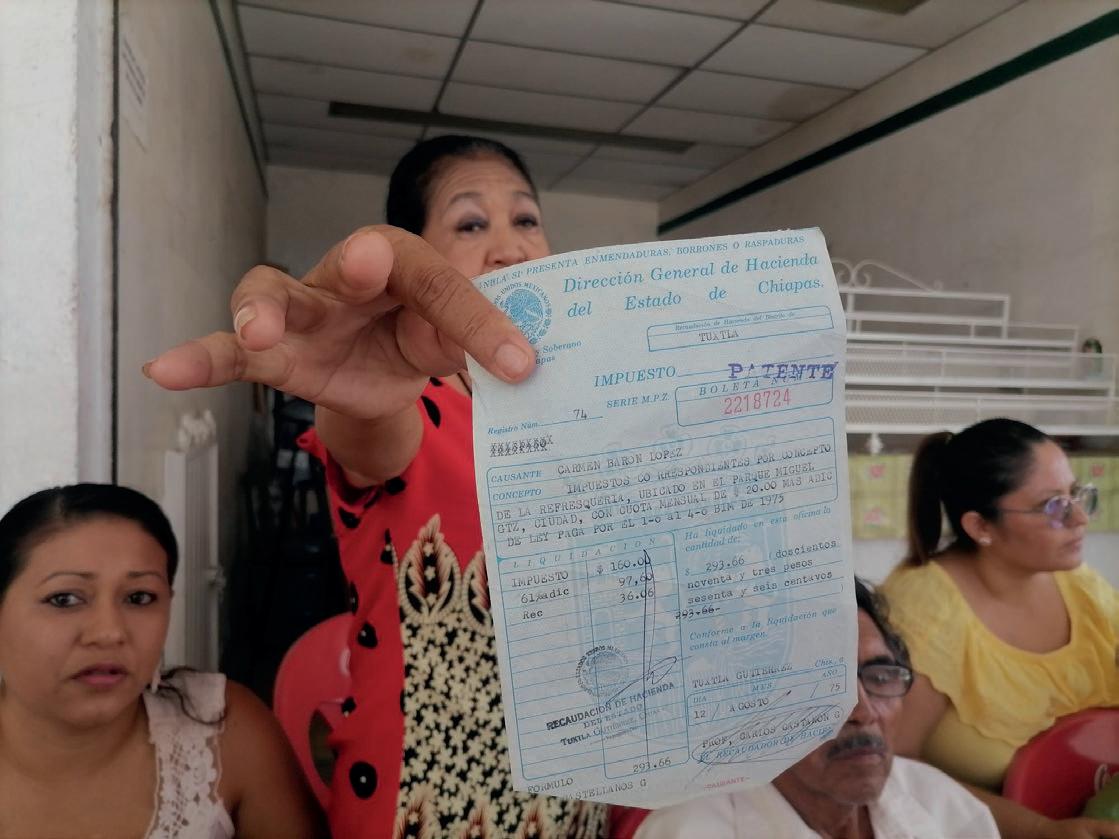 SI PRESENTA ENMENDADURAS, BORRONES O RASPADURAS
Dirección General de Hacienda
del Estado de Chiapas.
UNIDOS MEXICANOS
y Soberano
Recaudación de Hacienda del Distrito de
TUXTLA
IMPUESTO PATENTE
SERIE M.P.Z.
BOLETA
2218724
Registro Núm. 74
CAUSANTE CARMEN BARON LOPEZ
CONCEPTO IMPUESTOS CO RRESPONDIENTES POR CONCEPTO
DE LA REFRESQUERIA, UBICADO EN EL PARQUE MIGUEL
GTZ, CIUDAD, CON CUOTA MENSUAL DE $ 20.00 MAS ADIC
DE LEY PAGA POR EL 1-6 al 4-6 BIM DE 1975
LIQUIDACION
IMPUESTO $ 160.00
61%adic 97.60
Rec 36.06
Ha liquidado en esta oficina la
cantidad de:
$ 293.66 (doscientos
noventa y tres pesos
sesenta y seis centavos
293.66-
Conforme a la liquidación que
consta al margen.
TUXTLA GUTIERREZ Chis., a
DIA MES AÑO
12 / AGOSTO / 75
RECAUDACION DE HACIENDA
DEL ESTADO
293.66
PROF. CARLOS CASTAÑON G
EL RECAUDADOR DE HACIENDA
FORMULO
CASTELLANOS G
-CAUSANTE-